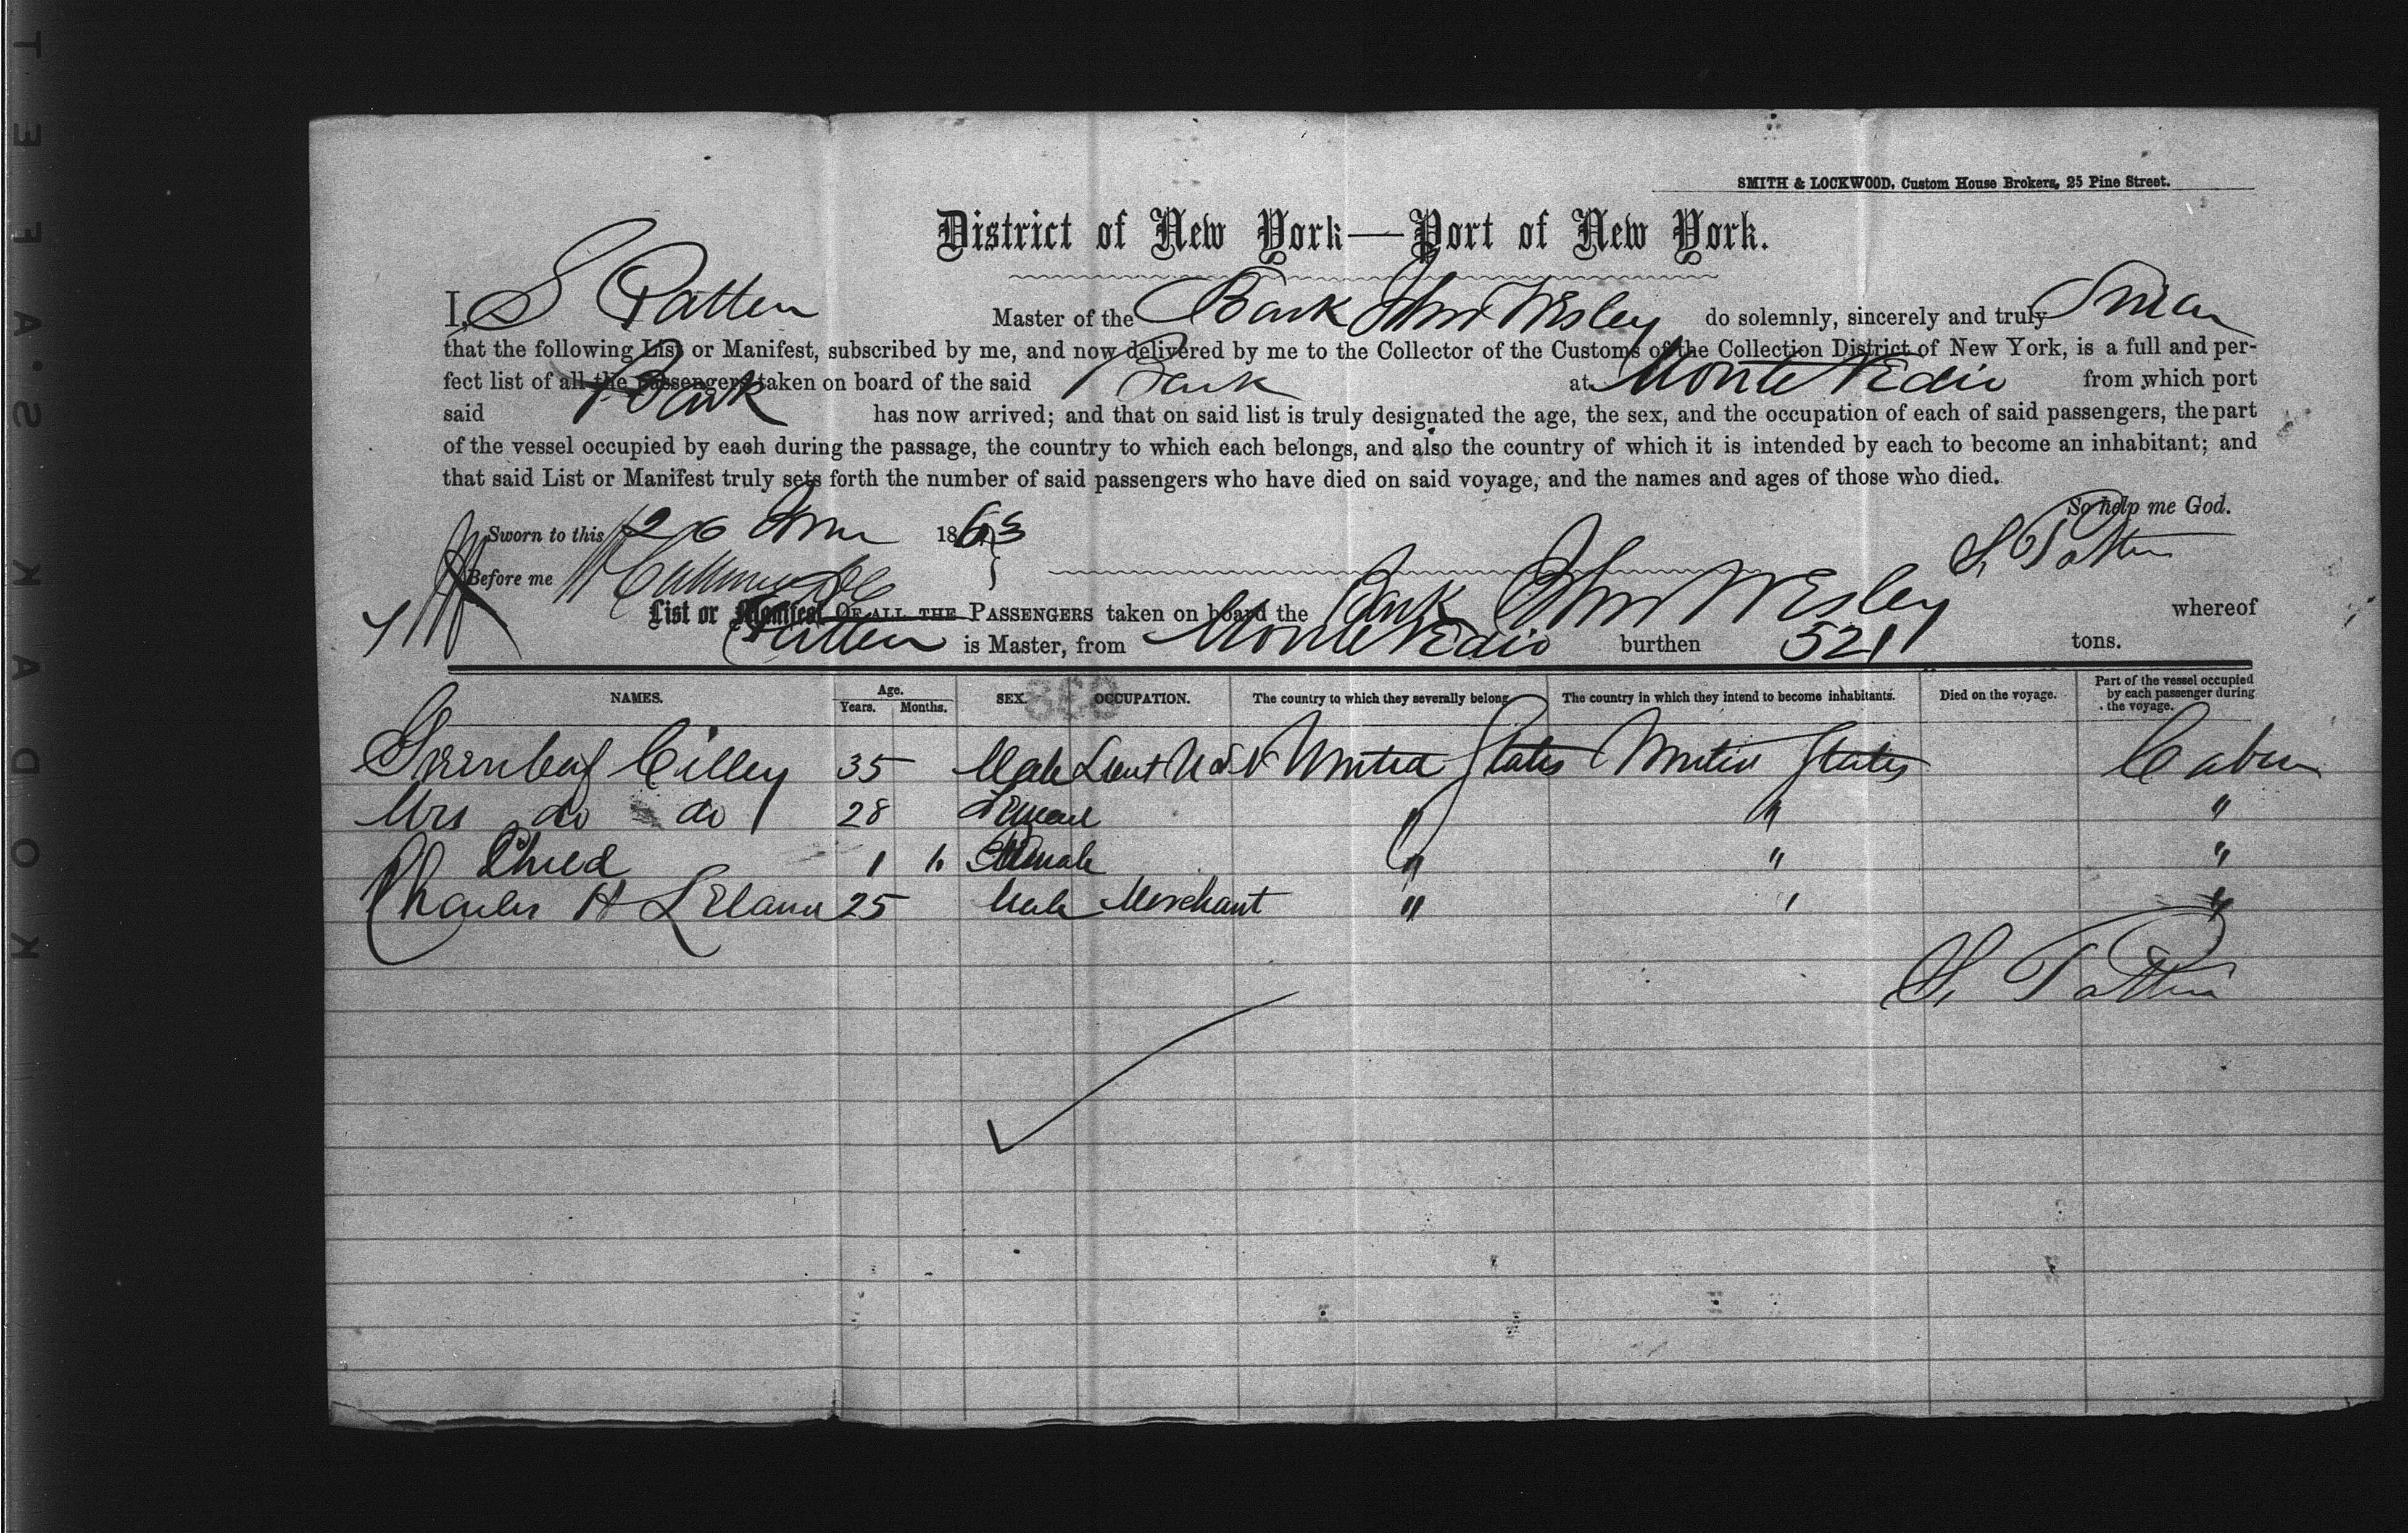 SMITH & LOCKWOOD, Custom House Brokers, 25 Pine Street.
District of New York—Port of New York.
I, S Patten Master of the Bark John Wesley do solemnly, sincerely and truly Swear
that the following List or Manifest, subscribed by me, and now delivered by me to the Collector of the Customs of the Collection District of New York, is a full and per-
fect list of all the passengers taken on board of the said Bark at Monte Vedio from which port
said Bark has now arrived; and that on said list is truly designated the age, the sex, and the occupation of each of said passengers, the part
of the vessel occupied by each during the passage, the country to which each belongs, and also the country of which it is intended by each to become an inhabitant; and
that said List or Manifest truly sets forth the number of said passengers who have died on said voyage, and the names and ages of those who died.
So help me God.
Sworn to this 26 1863
S. Patten
Before me
List or Manifest OF ALL THE PASSENGERS taken on board the Bark John Wesley whereof
Patten is Master, from Monte Vedio burthen 521 tons.
NAMES. Age. Years. Months. SEX. OCCUPATION. The country to which they severally belong. The country in which they intend to become inhabitants. Died on the voyage. Part of the vessel occupied by each passenger during the voyage.
Greenleaf Cilley 35 Male Lieut U S N United States United States Cabin
Mrs do do 28 Female " " "
Child 1 Female " " "
Charles H Leland 25 Male Merchant " " "
S. Patten
KODAK S.A.FET